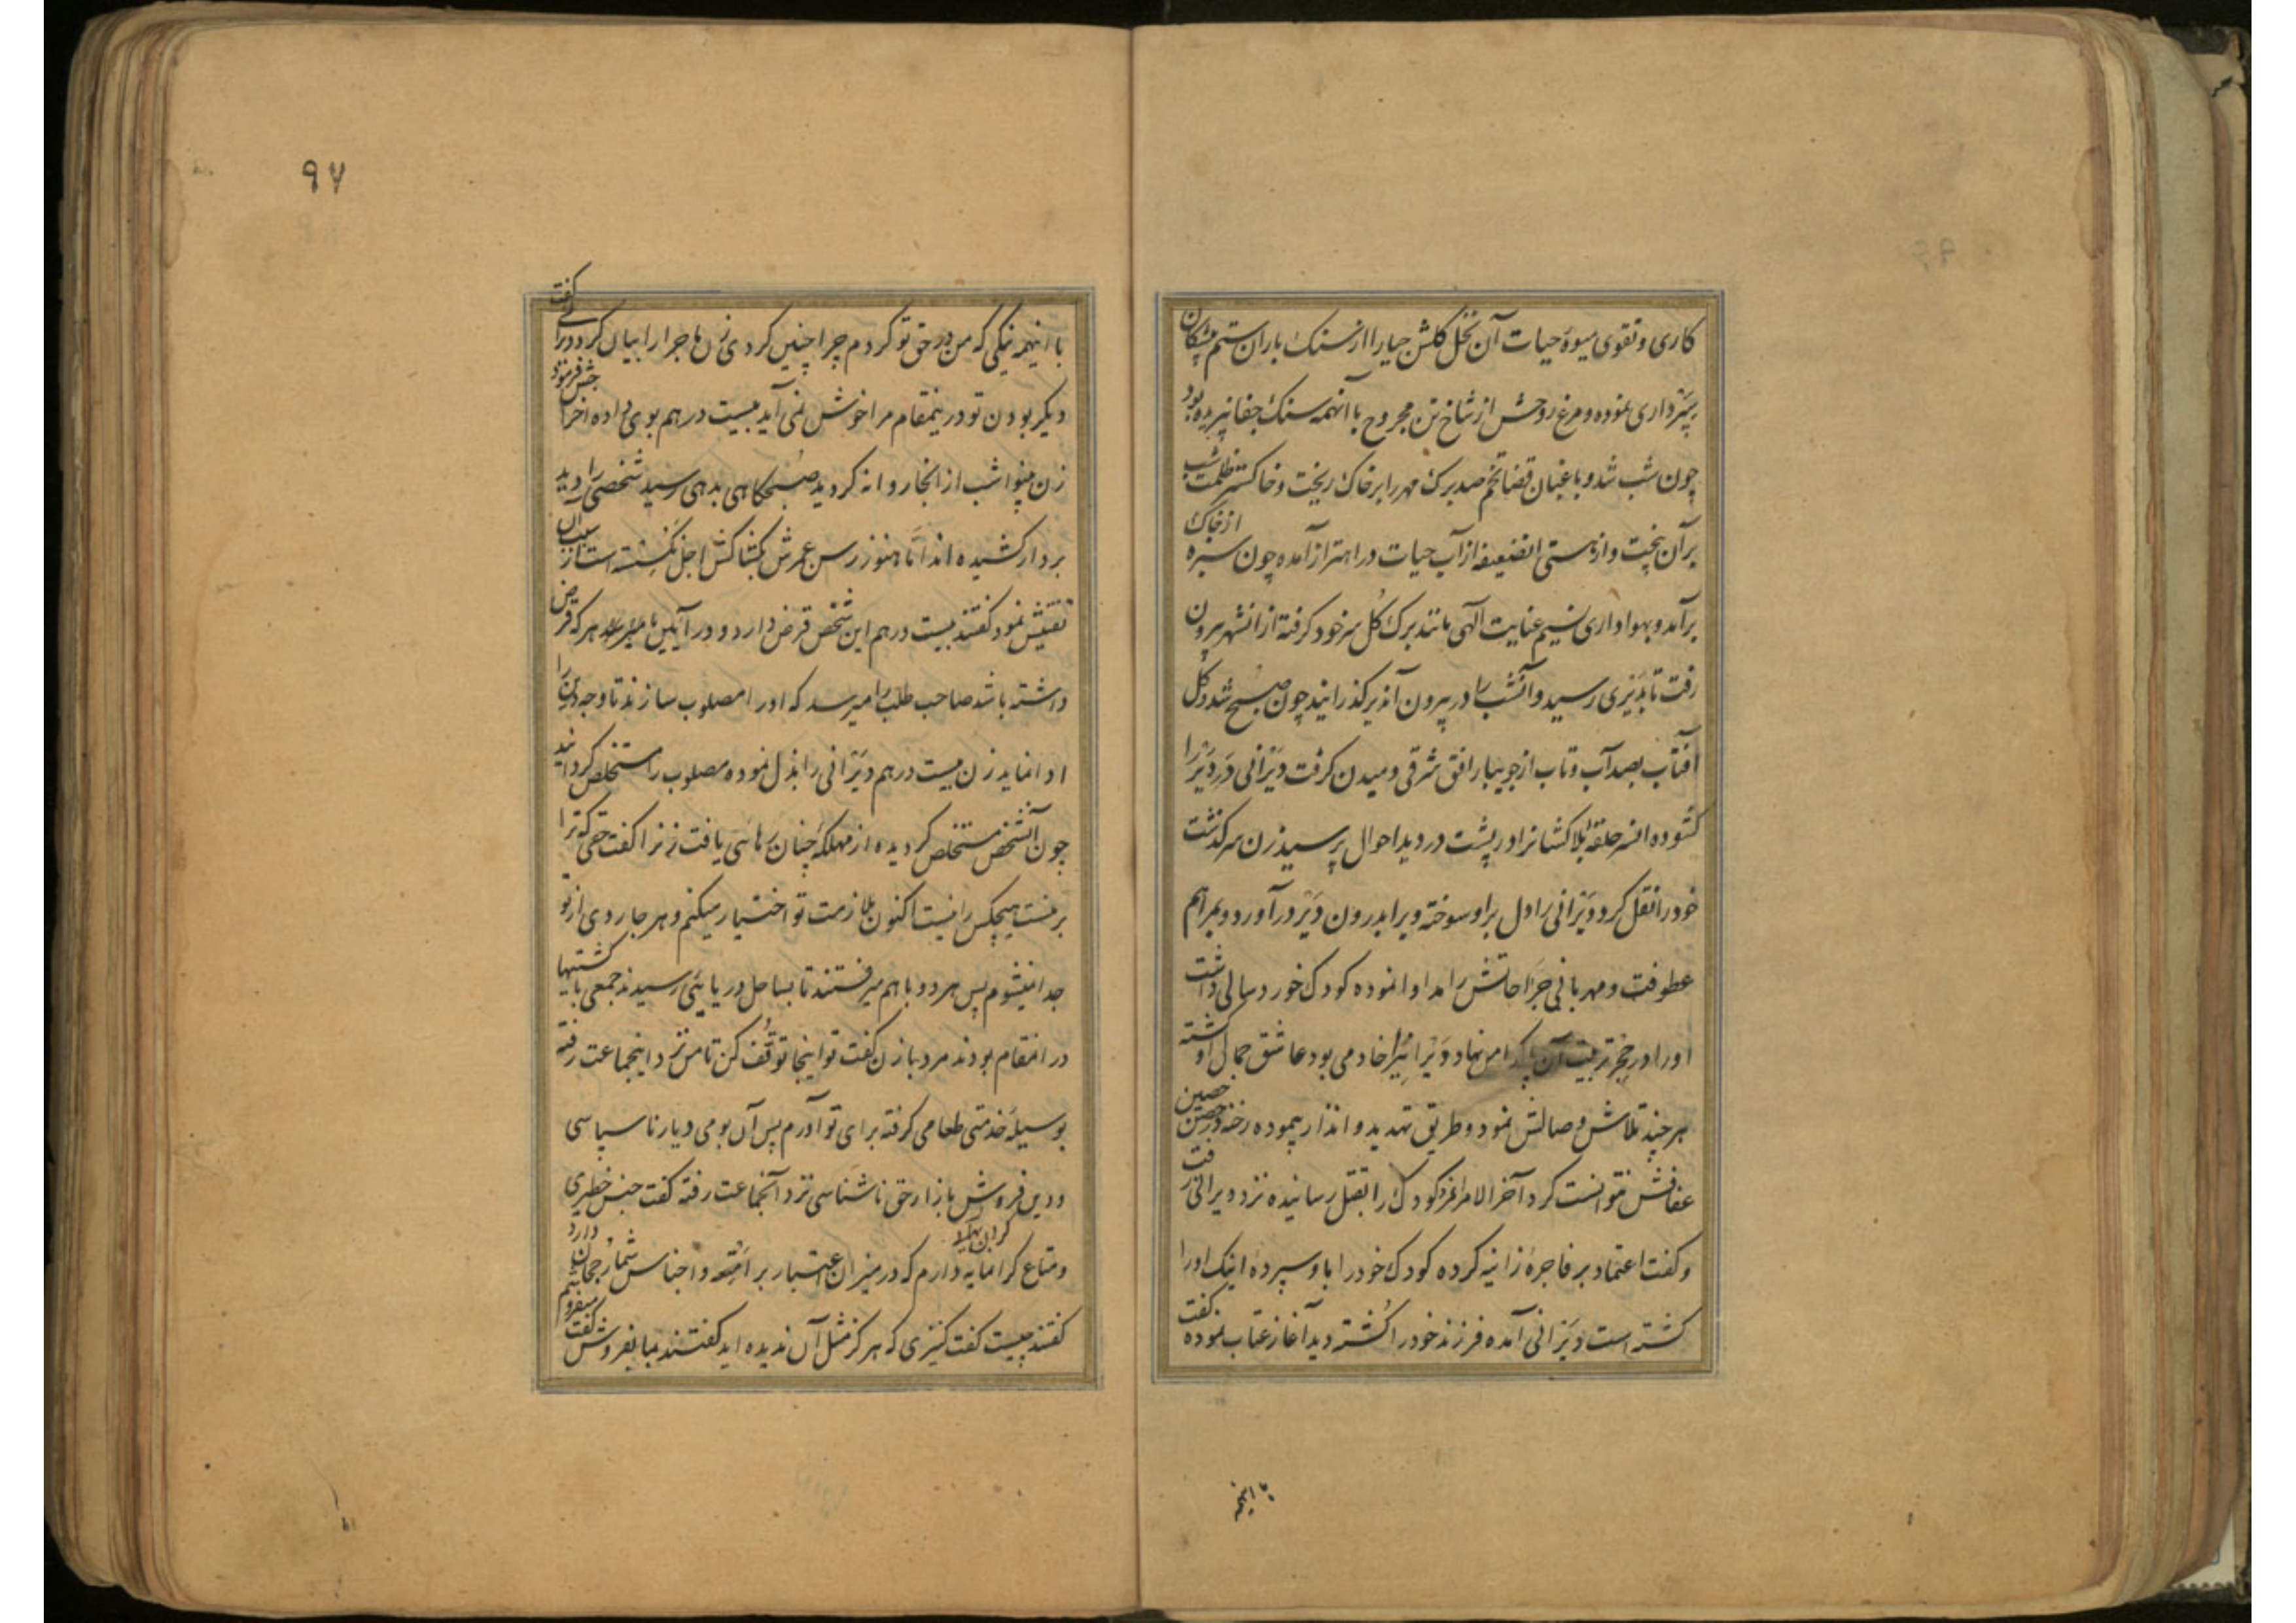 کاری و تقوی میوهٔ حیات آن نخل کلشن حیا را از سنک باران ستم پیشکان
سپرداری نموده و مرغ روحش از شاخ تن مجروح با آنهمه سنک جفا نپریده بود
چون شب شد و باغبان قضا تخم صد برک مهر را بر خاک ریخت و خاکستر ظلمت شب
بر آن بیخت و از هستی انضعیفه از آب حیات در اهتزاز آمده چون سبزه از خاک
برآمد و بهواداری نسیم عنایت الٓهی مانند برک کل سر خود کرفته از انشهر بیرون
رفت تا بدَیری رسید و آنشب را در بیرون آندیر کذرانید چون صبح شد و کل
آفتاب بصد آب و تاب از جویبار افق شرقی دمیدن کرفت دَیْرانی درِ دَیْر را
کشوده افسر حلقهٔ بلاکشانرا در پشت در دید احوال پرسید زن سرکذشت
خود را نقل کرد و دَیْرانی را دل بر او سوخته ویرا بدرون دَیْر درآورد و بمراهم
عطوفت و مهربانی جراحاتش را مداوا نموده کودک خوردسالی داشت
او را در حِجْر تربیت آن پاکدامن نهاد و دَیْرانی را خادمی بود عاشق جمال او کشته
هر چند تلاش وصالش نمود و طریق تهدید و انذار پیموده رخنه در حصن حصین
عفافش نتوانست کرد آخر الامر کودک را بقتل رسانیده نزد دیرانی رفت
و کفت اعتماد بر فاجرهٔ زانیه کرده کودک خود را باو سپردهٔ اینک او را
کشته است دَیْرانی آمده فرزند خود را کُشته دید آغاز عتاب نموده کفت
با اینهمه
٩٧
با اینهمه نیکی که من در حق تو کردم چرا چنین کردی زن ماجرا را بیان کرد دیرانی کفت
دیکر بودن تو در ینمقام مرا خوش نمی آید بیست درهم بوی داده اخراجش فرمود
زن بینوا شب از انجا روانه کردید صبحکاهی بدهی رسید شخصی را دید
بر دار کشیده اند امّا هنوز رسن عمرش بکشاکش اجل نکسسته است از سبب آن
تفتیش نمود کفتند بیست درهم این شخص قرض دارد و در آیین ما هر که قرض
داشته باشد صاحب طلب را میرسد که او را مصلوب سازند تا وجه دین را
ادا نماید زن بیست درهم دَیْرانی را بذل نموده مصلوب را مستخلص کردانید
چون آنشخص مستخلص کردیده از مهلکهٔ چنان رهائی یافت زنرا کفت حقی که ترا
بر منست هیچکس را نیست اکنون ملازمت تو اختیار میکنم و هر جا روی از تو
جدا نمیشوم پس هر دو با هم میرفتند تا بساحل دریائی رسیدند جمعی با کشتیها
در انمقام بودند مرد بازن کفت تو اینجا توقّف کن تا من نزد اینجماعت رفته
بوسیله خدمتی طعامی کرفته برای تو آورم پس آن بومی دیار ناسپاسی
و دین فروش بازار حق ناشناسی نزد آنجماعت رفته کفت جنس خطیری
و متاع کرانمایه دارم که در میزان اعتبار بر اَمْتِعه و اجناس شما رجحان دارد
کفتند چیست کفت کنیزی که هرکز مثل آن ندیده اید کفتند بما بفروش کفت میفروشم